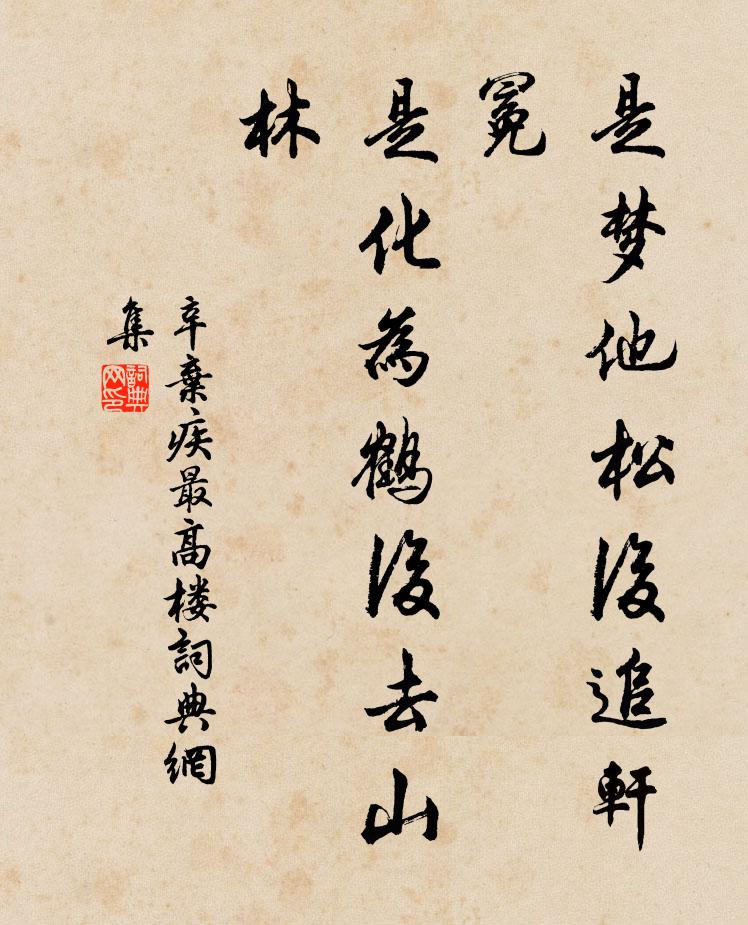 是梦他松後追軒
冕
是化為鶴後去山
林
辛棄疾最高楼詞典網
集
詞典
网印